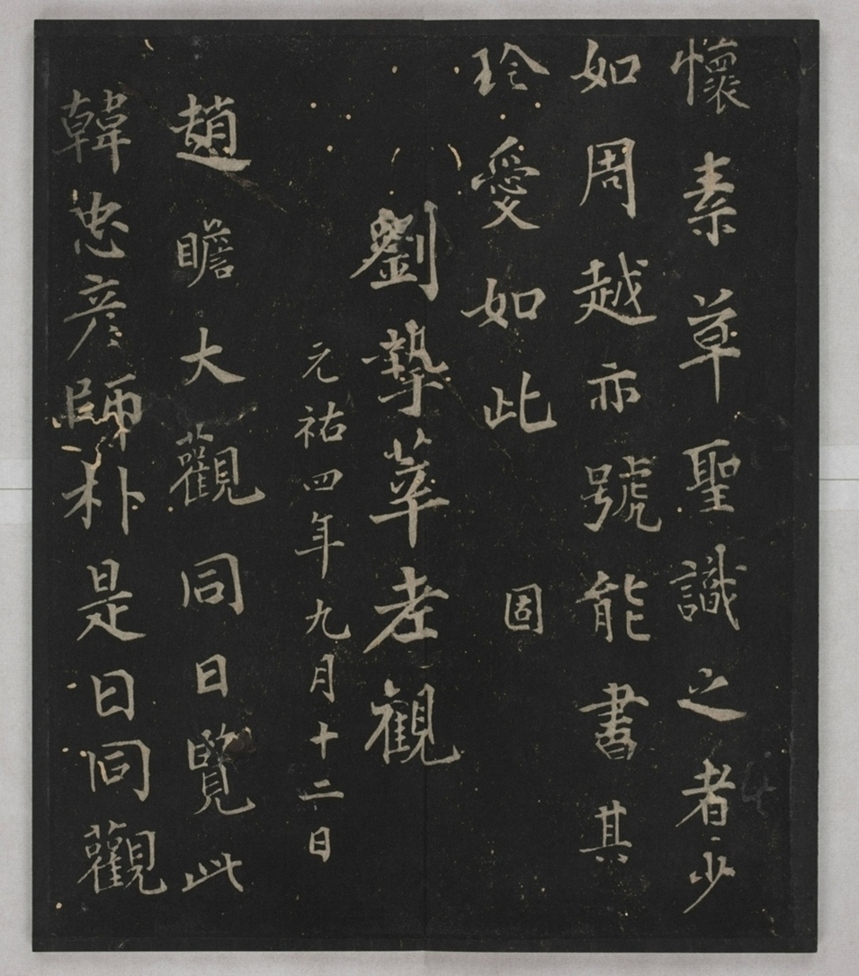 懷素草聖識之者少
如周越亦號能書其
珍愛如此 固
劉摯莘老觀
元祐四年九月十二日
趙瞻大觀同日覽此
韓忠彦師朴是日同觀